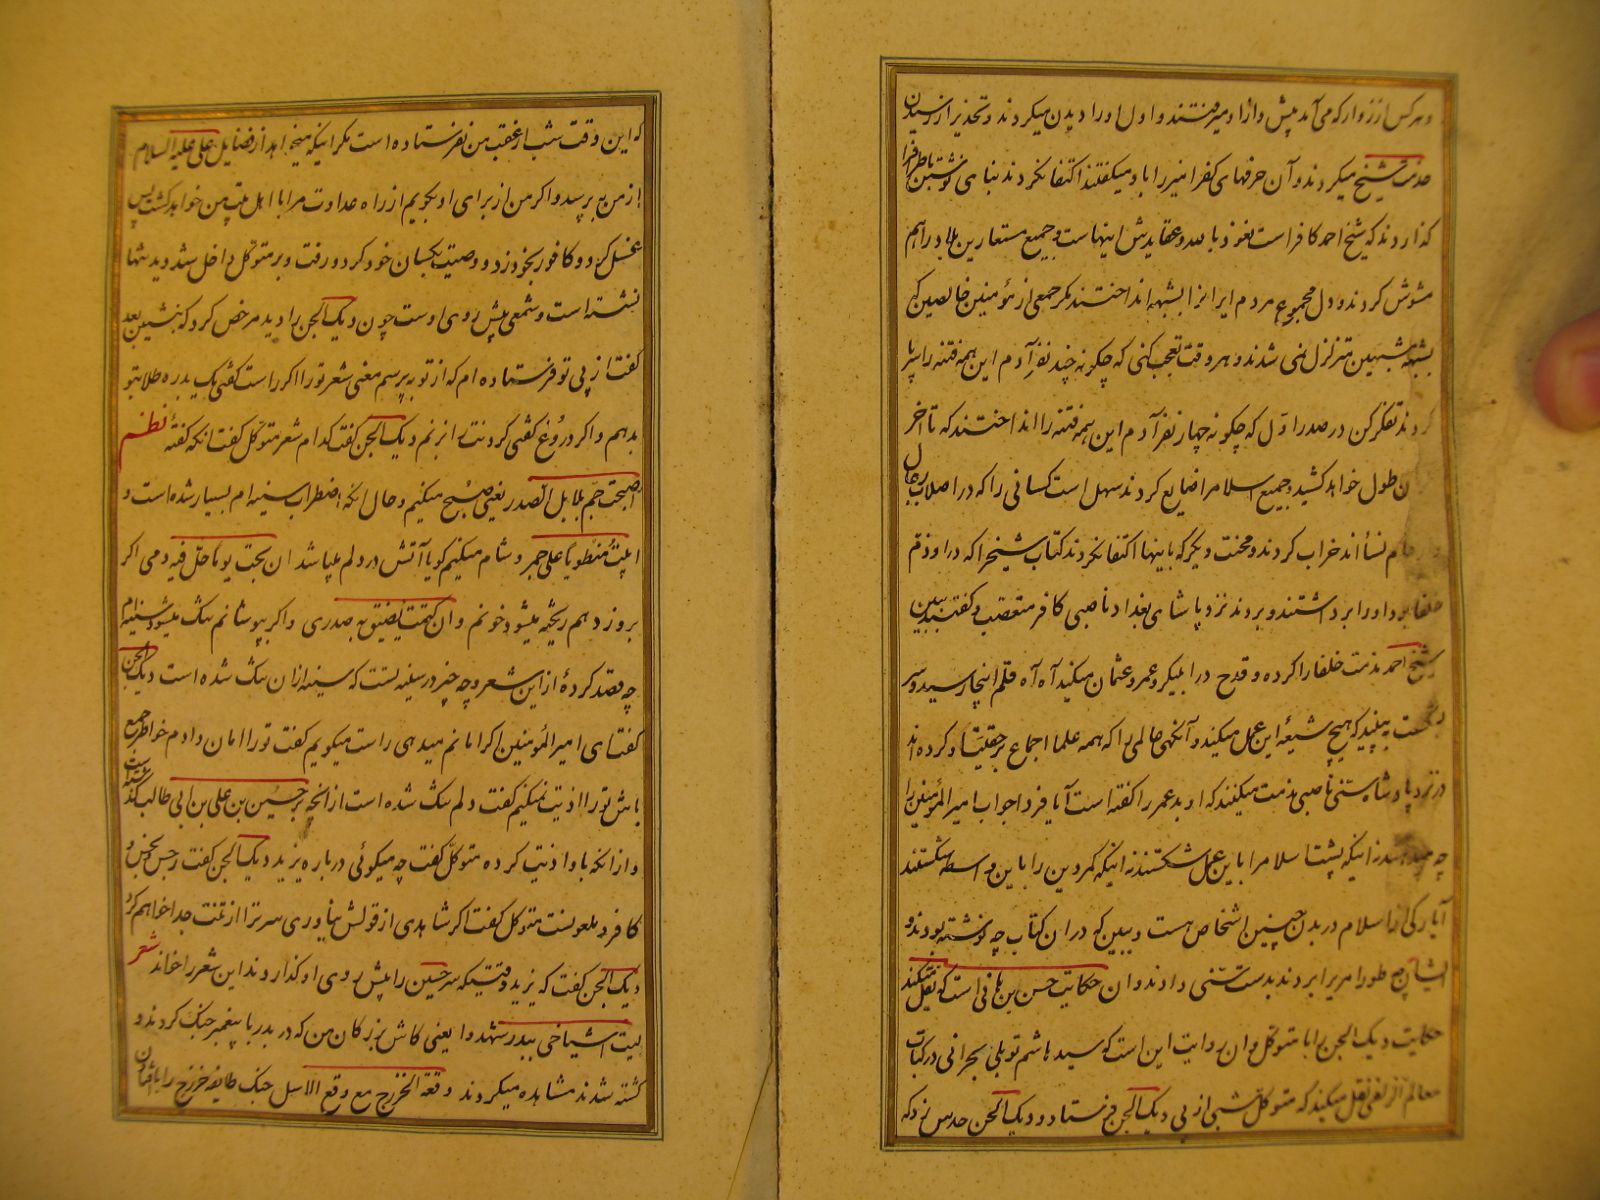 و هر کس از زوار که می آمد پیش و از او میرفتند و اول او را دیدن میکردند و تحذیر از رسیدن
خدمت شیخ میکردند و آن حرفهای کفر آمیز را باو میگفتند اکتفا نکردند بنای نوشتن باطراف
گذاردند که شیخ احمد کافر است نعوذ بالله و عقایدش اینهاست و جمیع مستعارین بلاد را هم
مشوش کردند و دل مجموع مردم ایران را بشبهه انداختند مگر جمعی از مؤمنین خالصین که
بشبهه شبهین متزلزل نمی شدند و هر وقت تعجب کنی که چگونه چند نفر آدم این همه فتنه را بر پا
کردند تفکر کن در صدر اول که چگونه چهار نفر آدم این همه فتنه را انداختند که تا آخر
طول خواهد کشید و جمیع اسلام را ضایع کردند سهل است کسانی را که در اصلاب رجال
و ارحام نسأ اند خراب کردند و محنت دیگر که باینها اکتفا نکردند کتاب شیخ را که در او ذم
خلفا بود او را برداشتند و بردند نزد پاشای بغداد ناصبی کافر متعصب و گفتند ببین
شیخ احمد مذمت خلفا را کرده و قدح در ابابکر و عمر و عثمان میکند آه آه قلم اینجا رسید و سر
بشکست ببینید که هیچ شیعه این عمل میکند و آنگهی عالمی را که همه علما اجماع بر حقیت او کرده اند
در نزد پادشاه سنی ناصبی مذمت میکنند که او بد عمر را گفته است آیا فردا جواب امیر المؤمنین را
چه میدهند نه اینکه پشت اسلام را باین عمل شکستند نه اینکه کمر دین را باین واسطه شکستند
آیا رگی از اسلام در بدن چنین اشخاص هست و ببین که در آن کتاب چه نوشته بودند و
ایشان چه طور امر را بردند بدست سنی دادند و آن حکایت حسن بن هانی است که نقل میکند
حکایت دیک الجن را با متوکل و آن روایت این است که سید هاشم توبلی بحرانی در کتاب
معالم الزلفی نقل میکند که متوکل شبی از پی دیک الجن فرستاد و دیک الجن حدس زد که
که این وقت شب از عقب من نفرستاده است مگر اینکه میخواهد از فضایل علی علیه السلام
از من بپرسد و اگر من از برای او بگویم از راه عداوت مرا با اهل بیتم خواهد کشت پس
غسل کرد و کافور بخود زد و وصیت بکسان خود کرد و رفت و بر متوکل داخل شد دید تنها
نشسته است و شمعی پیش روی اوست چون دیک الجن را دید مرخص کرد که بنشین بعد
گفت از پی تو فرستاده ام که از تو بپرسم معنی شعر تو را اگر راست گفتی یک بدره طلا بتو
بدهم و اگر دروغ گفتی گردنت را بزنم دیک الجن گفت کدام شعر متوکل گفت آنکه گفتهٔ نظم
اصبحت جم بلابل الصدر یعنی صبح میکنم و حال آنکه اضطراب سینه ام بسیار شده است و
ابیت منطویا علی جمر و شام میکنم گویا آتش در دلم میپاشد ان بحت یوما حل فیه دمی اگر
بروز دهم ریخته میشود خونم و ان کتمت یضیق به صدری و اگر بپوشانم تنگ میشود سینه ام
چه قصد کردهٔ از این شعر و چه چیز در سینه تست که سینه از آن تنگ شده است دیک الجن
گفت ای امیر المؤمنین اگر امانم میدهی راست میگویم گفت تو را امان دادم خواطر جمع
باش تو را اذیت نمیکنیم گفت دلم تنگ شده است از آنچه بر حسین بن علی بن ابی طالب گذشته است
و از آنکه باو اذیت کرده متوکل گفت چه میگوئی در باره یزید دیک الجن گفت رجس و نجس و
کافر و ملعونست متوکل گفت اگر شاهدی از قولش نیاوری سر ترا از تنت جدا خواهم کرد
دیک الجن گفت که یزید وقتیکه سر حسین را پیش روی او گذاردند این شعر را خاند شعر
لیت اشیاخی ببدر شهدوا یعنی کاش بزرگان من که در بدر با پیغمبر جنگ کردند و
کشته شدند مشاهده میکردند وقعة الخزرج مع وقع الاسل جنگ طایفه خزرج را با ایشان